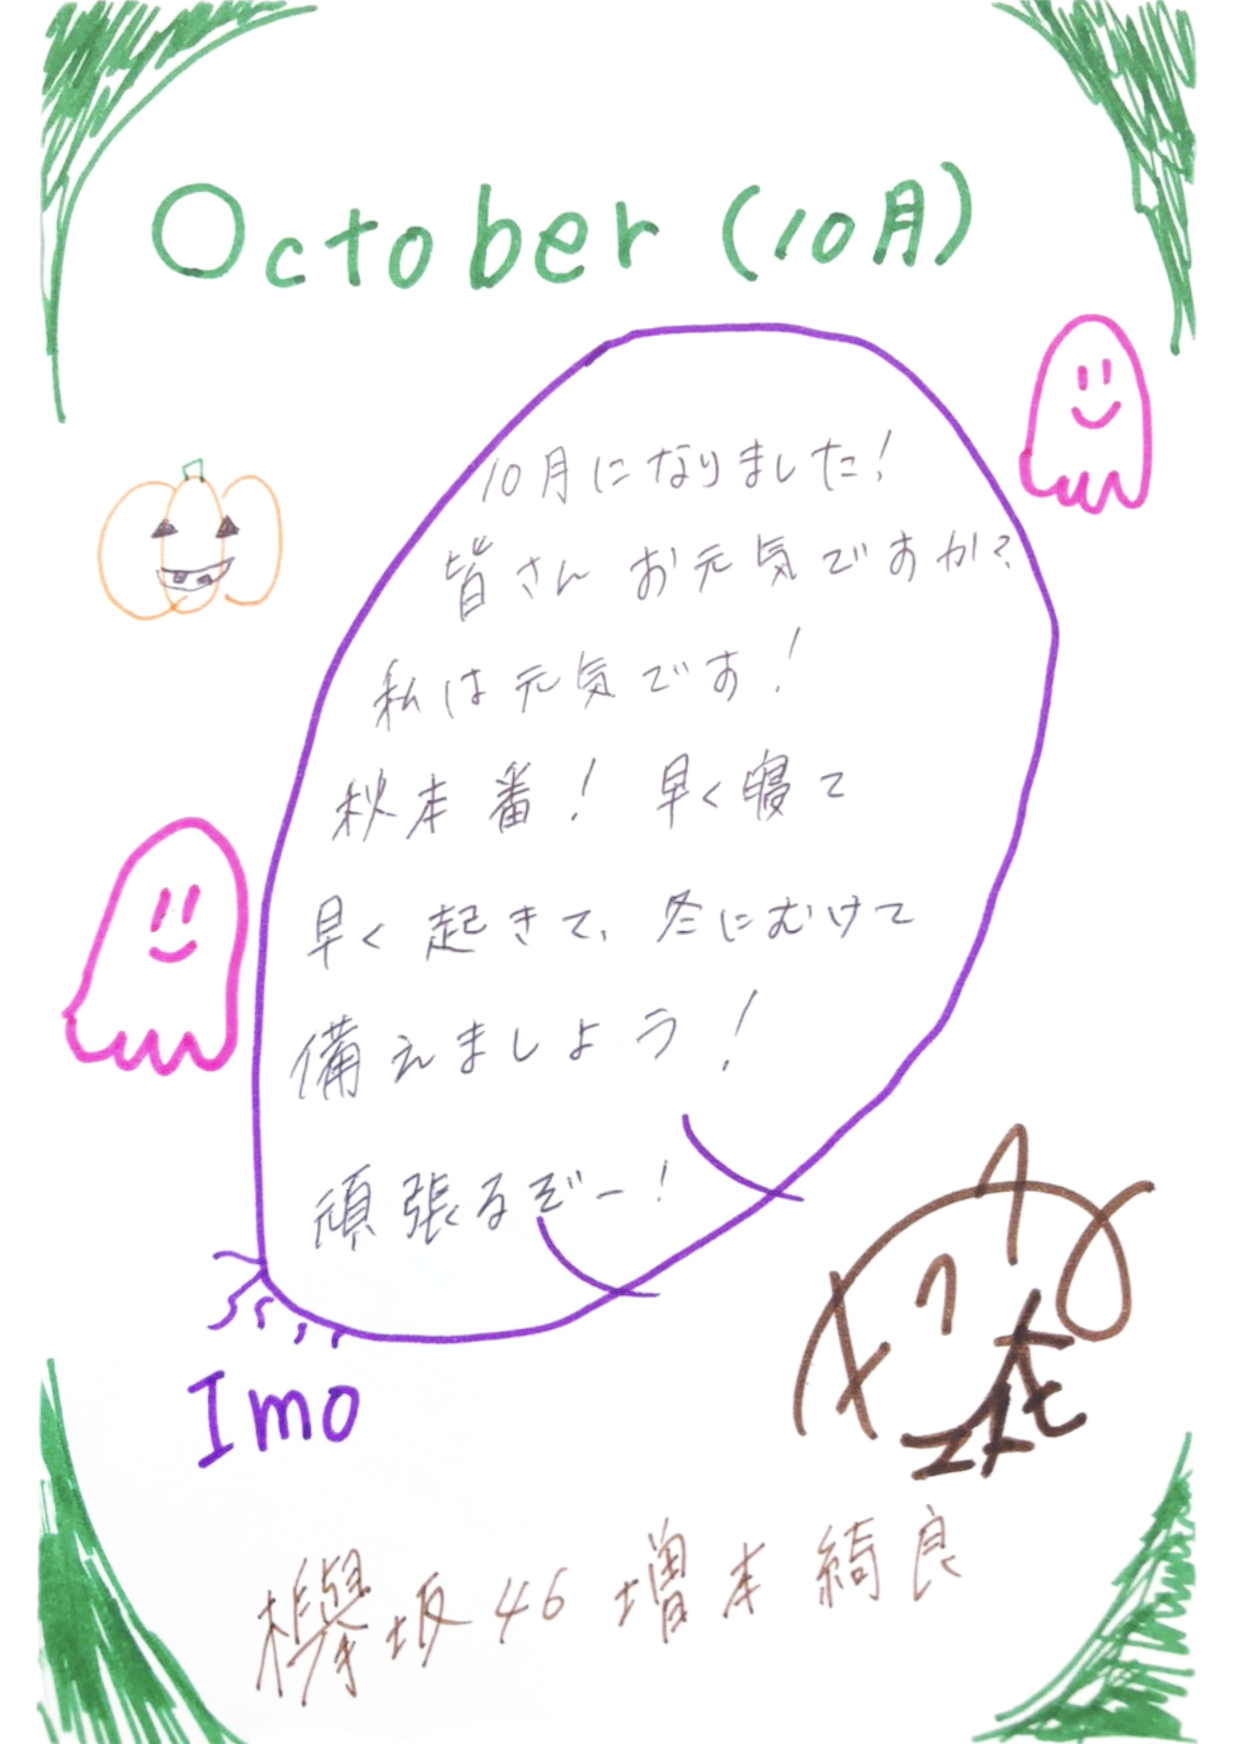 October (10月)
10月になりました!
皆さんお元気ですか?
私は元気です!
秋本番! 早く寝て
早く起きて、冬にむけて
備えましょう!
頑張るぞー!
Imo
欅坂46 増本綺良